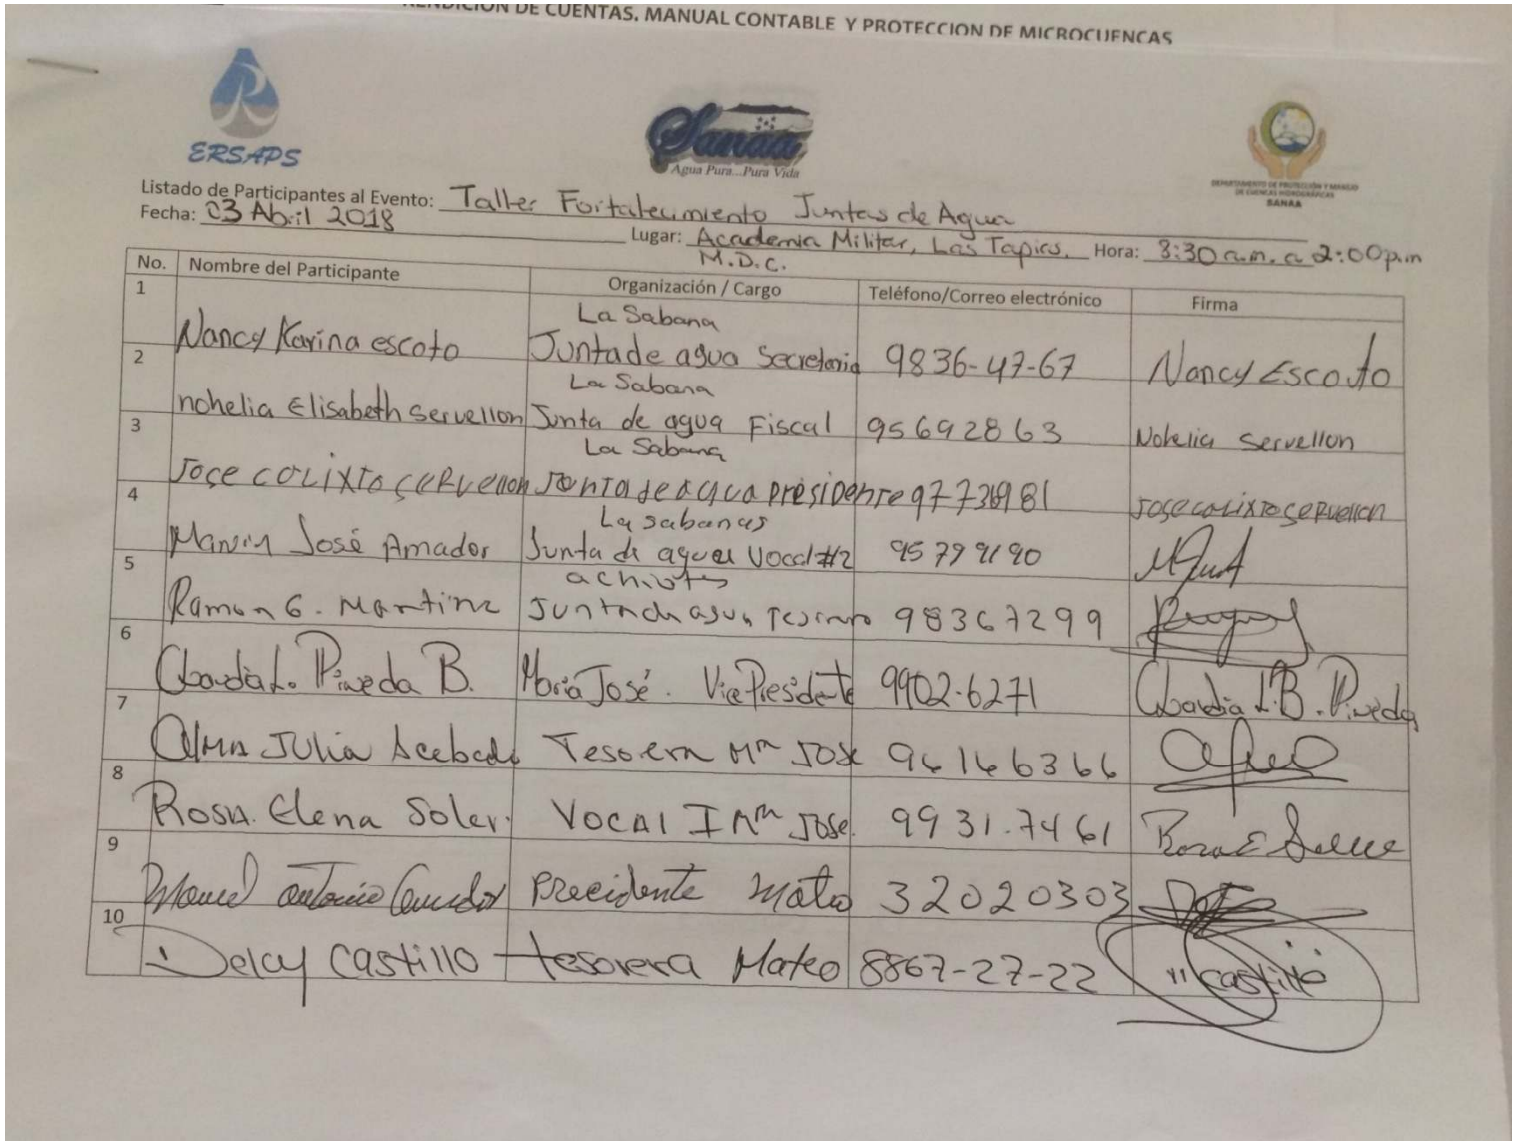 RENDICION DE CUENTAS. MANUAL CONTABLE Y PROTECCION DE MICROCUENCAS
ERSAPS
Sanaa
Agua Pura...Pura Vida
DEPARTAMENTO DE PROTECCIÓN Y MANEJO
DE CUENCAS HIDROGRÁFICAS
SANAA
Listado de Participantes al Evento: Taller Fortalecimiento Juntas de Agua
Fecha: 03 Abril 2018 Lugar: Academia Militar, Las Tapias, Hora: 8:30 a.m. a 2:00 p.m
M.D.C.
No. Nombre del Participante Organización / Cargo Teléfono/Correo electrónico Firma
La Sabana
1 Nancy Karina escoto Junta de agua Secretaria 9836-47-67 Nancy Escoto
La Sabana
2 nohelia Elisabeth servellon Junta de agua Fiscal 95692863 Nohelia servellon
La Sabana
3 Jose colixto servellon Junta de agua presidente 97736981 Jose colixto servellon
La sabanas
4 Marvin José Amador Junta de agua Vocal #2 95799190
achiotes
5 Ramon G. Martinz Junta de agua Tesorero 98367299
6 Claudia L. Pineda B. María José. Vice Presidente 9902-6271 Claudia L.B. Pineda
7 Alma Julia Acebedo Tesorera Mª José 96166366
8 Rosa. Elena Soler. Vocal I Mª José. 9931.7461 Rosa E
9 Manuel antonio Precidente Mateo 32020303
10 Delcy Castillo tesorera Mateo 8867-27-22 Castillo